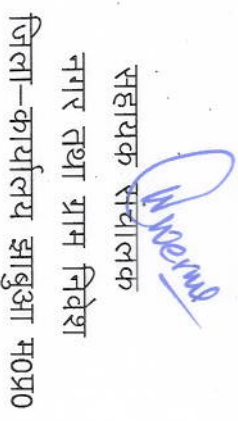 सहायक संचालक
नगर तथा ग्राम निवेश
जिला-कार्यालय झाबुआ म०प्र०